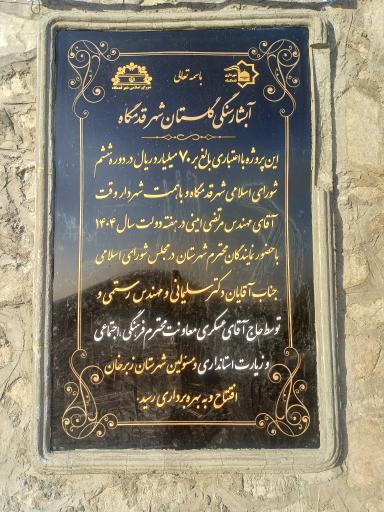 باسمه تعالی
شورای اسلامی شهر قدمگاه
آبشار سنگی گلستان شهر قدمگاه
این پروژه با اعتباری بالغ بر ۷۰ میلیارد ریال در دوره ششم
شورای اسلامی شهر قدمگاه و با همت شهردار وقت
آقای مهندس مرتضی امینی در هفته دولت سال ۱۴۰۴
با حضور نمایندگان محترم شهرستان در مجلس شورای اسلامی
جناب آقایان دکتر سلیمانی و مهندس رستمی و
توسط حاج آقای عسکری معاونت محترم فرهنگی، اجتماعی
و زیارت استانداری و مسئولین شهرستان زبرخان
افتتاح و به بهره برداری رسید.